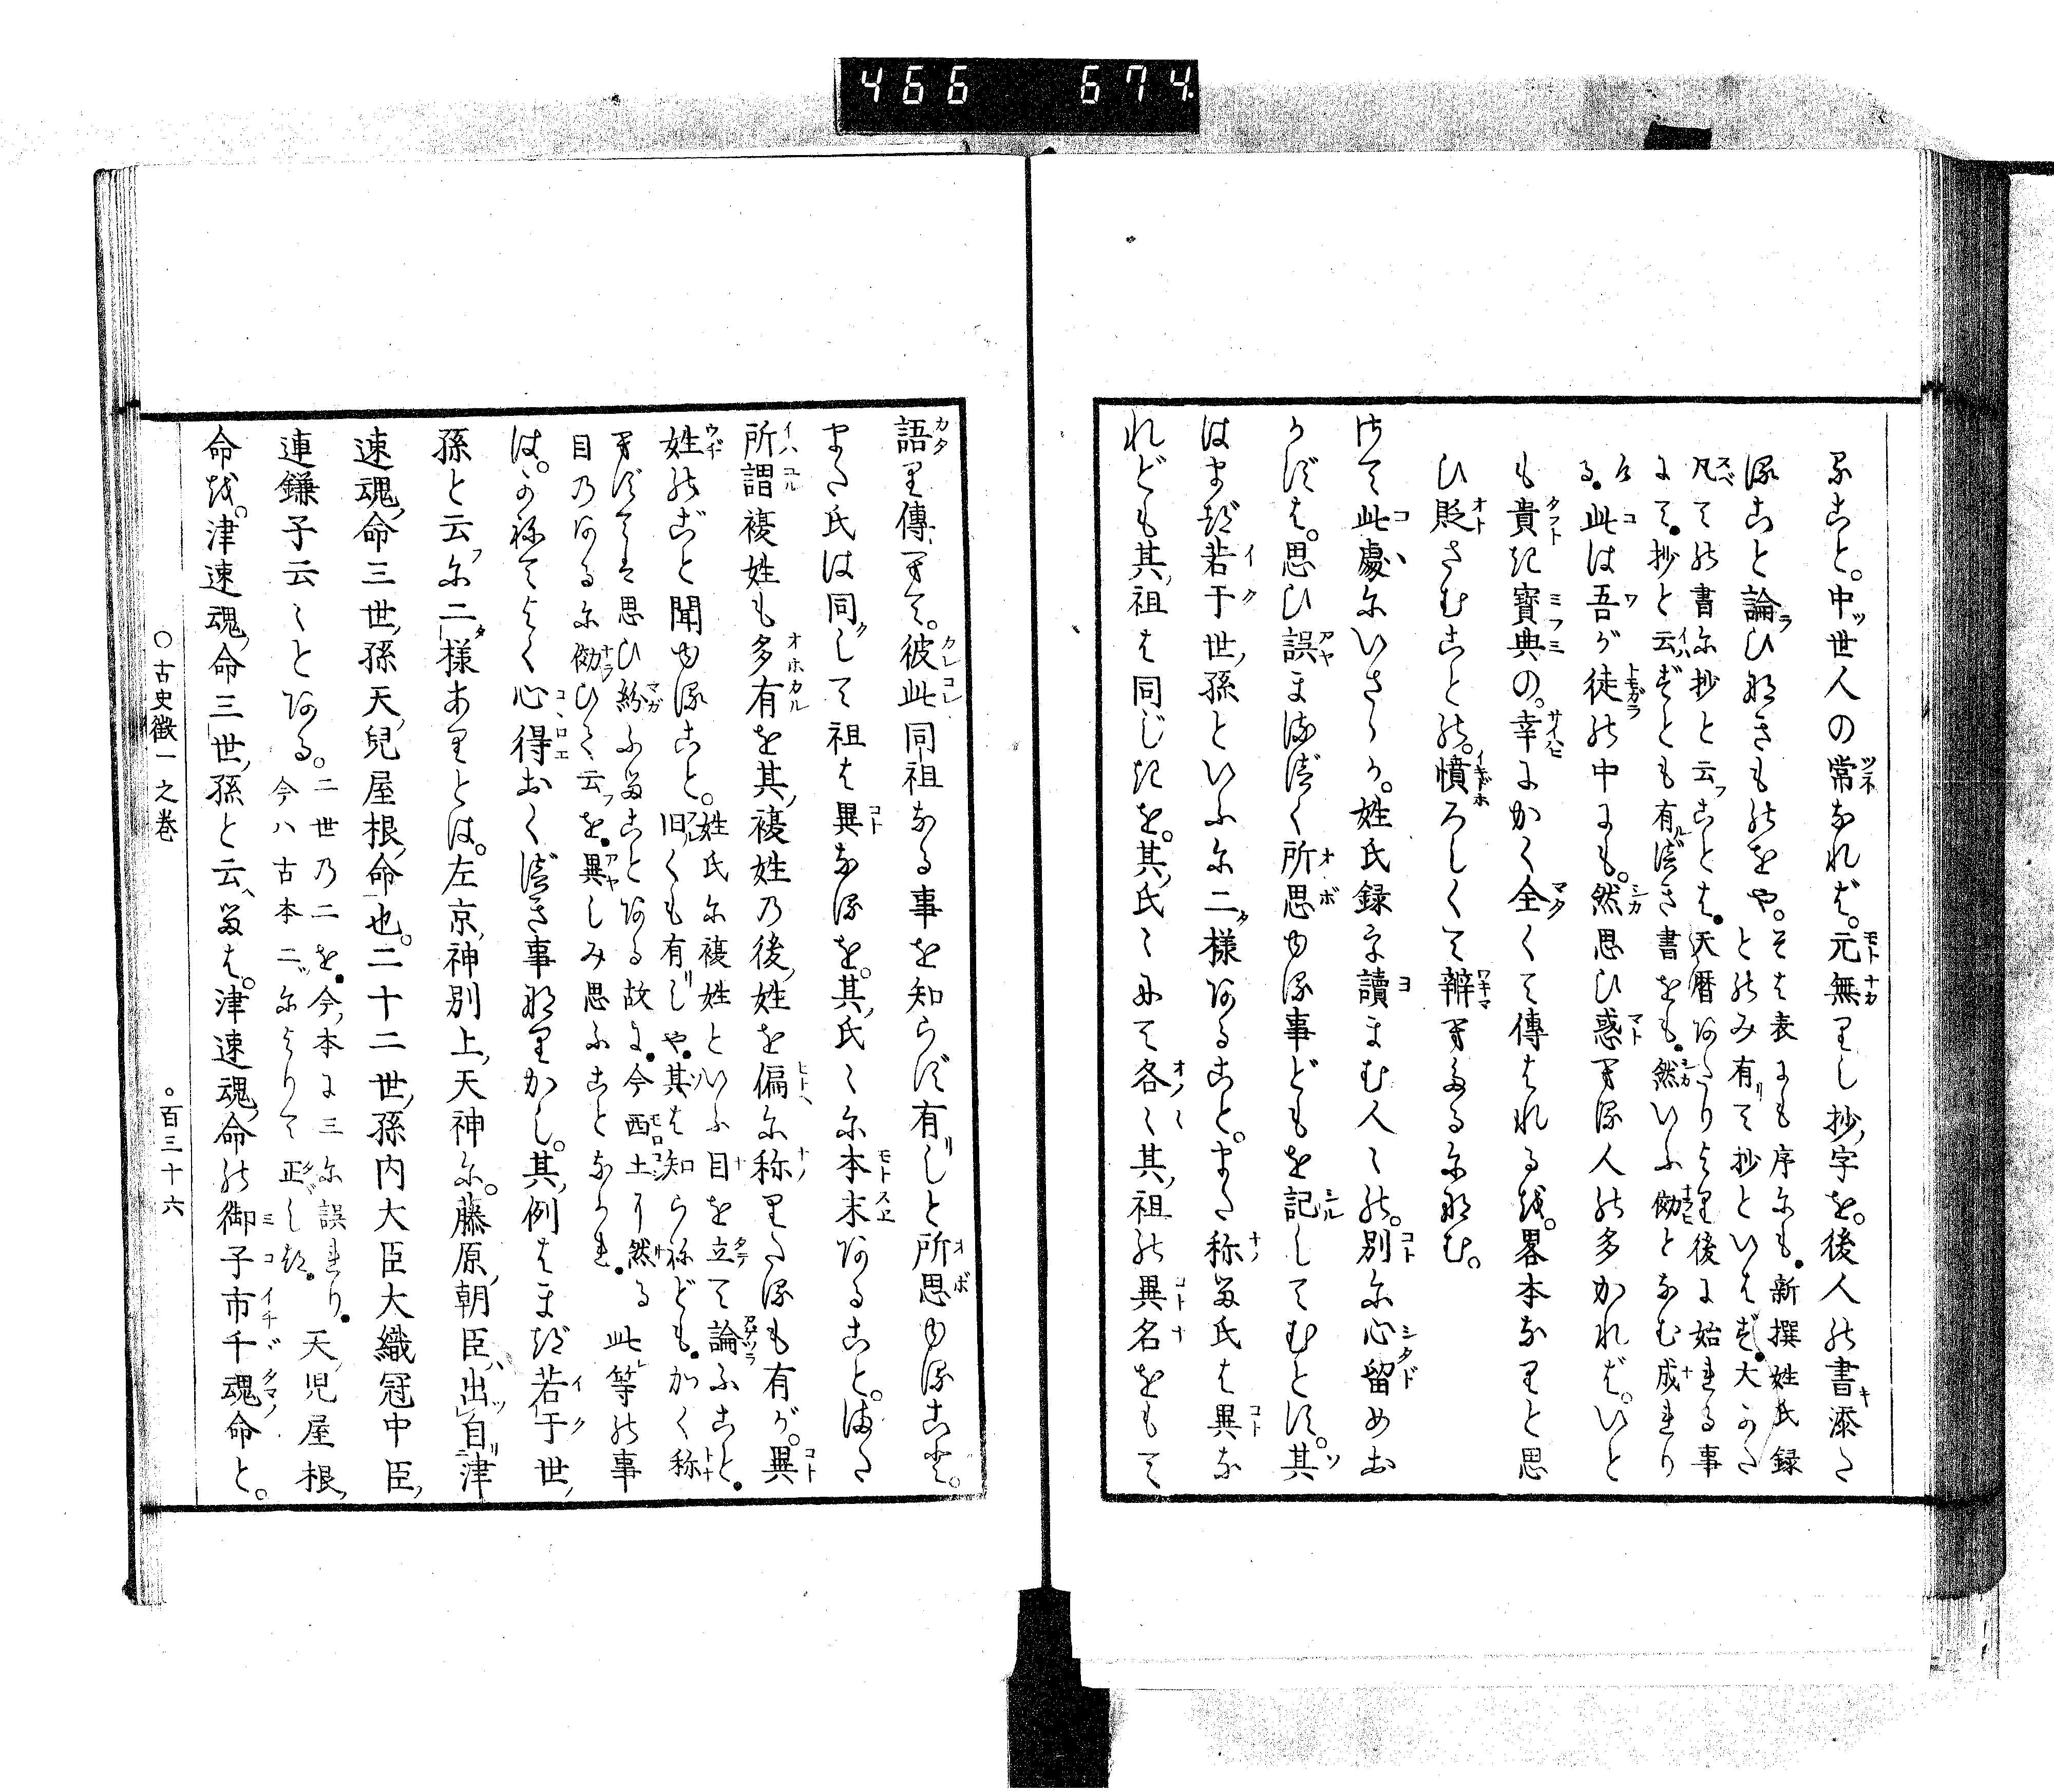 466 674
ること。中世人の常なれば。元無りし抄字を。後人の書添た
ること論ひなきものをや。そは表にも序にも。新撰姓氏録
とのみ有て抄といはず。大かた
凡ての書に抄と云ことは。天暦あたりより後に始れる事
にて。抄と云ずとも有べき書をも。然いふ傚となむ成れり
ける。此は吾が徒の中にも。然思ひ惑へる人の多かれば。いと
も貴き寶典の。幸にかく全くて傳はれるを。畧本なりと思
ひ貶さむことの。憤ろしくて辯へたるになむ。
けて此處にいさゝか。姓氏録を讀まむ人々の。別に心留めお
かずは。思ひ誤まるべく所思ゆる事どもを記してむとす。其
はまづ若干世孫といふに二様あること。また称ふ氏は異な
れども其祖は同じきを。其氏々にて各々其祖の異名をもて
語り傳へて。彼此同祖なる事を知らず有しと所思ゆること。
また氏は同して祖は異なるを。其氏々に本末あること。また
所謂複姓も多有を其複姓の後姓を偏に称りたるも有が。異
姓のごと聞ゆること。姓氏に複姓といふ目を立て論ふこと。
旧くも有しや。其は知らねども。かく称
へずては思ひ紛ふることある故に。今西土に然る
目のあるに傚ひて云を。異しみ思ふことなかれ。此等の事
は。かねてよく心得おくべき事なりかし。其例はまづ若干世
孫と云に二様ありとは。左京神別上天神に。藤原朝臣出自津
速魂命三世孫天兒屋根命也。二十二世孫内大臣大織冠中臣
連鎌子云々とある。二世の二を。今本に三に誤れり。
今ハ古本二によりて正しき。天児屋根
命を。津速魂命三世孫と云るは。津速魂命の御子市千魂命と。
○古史徴一之巻
○百三十六